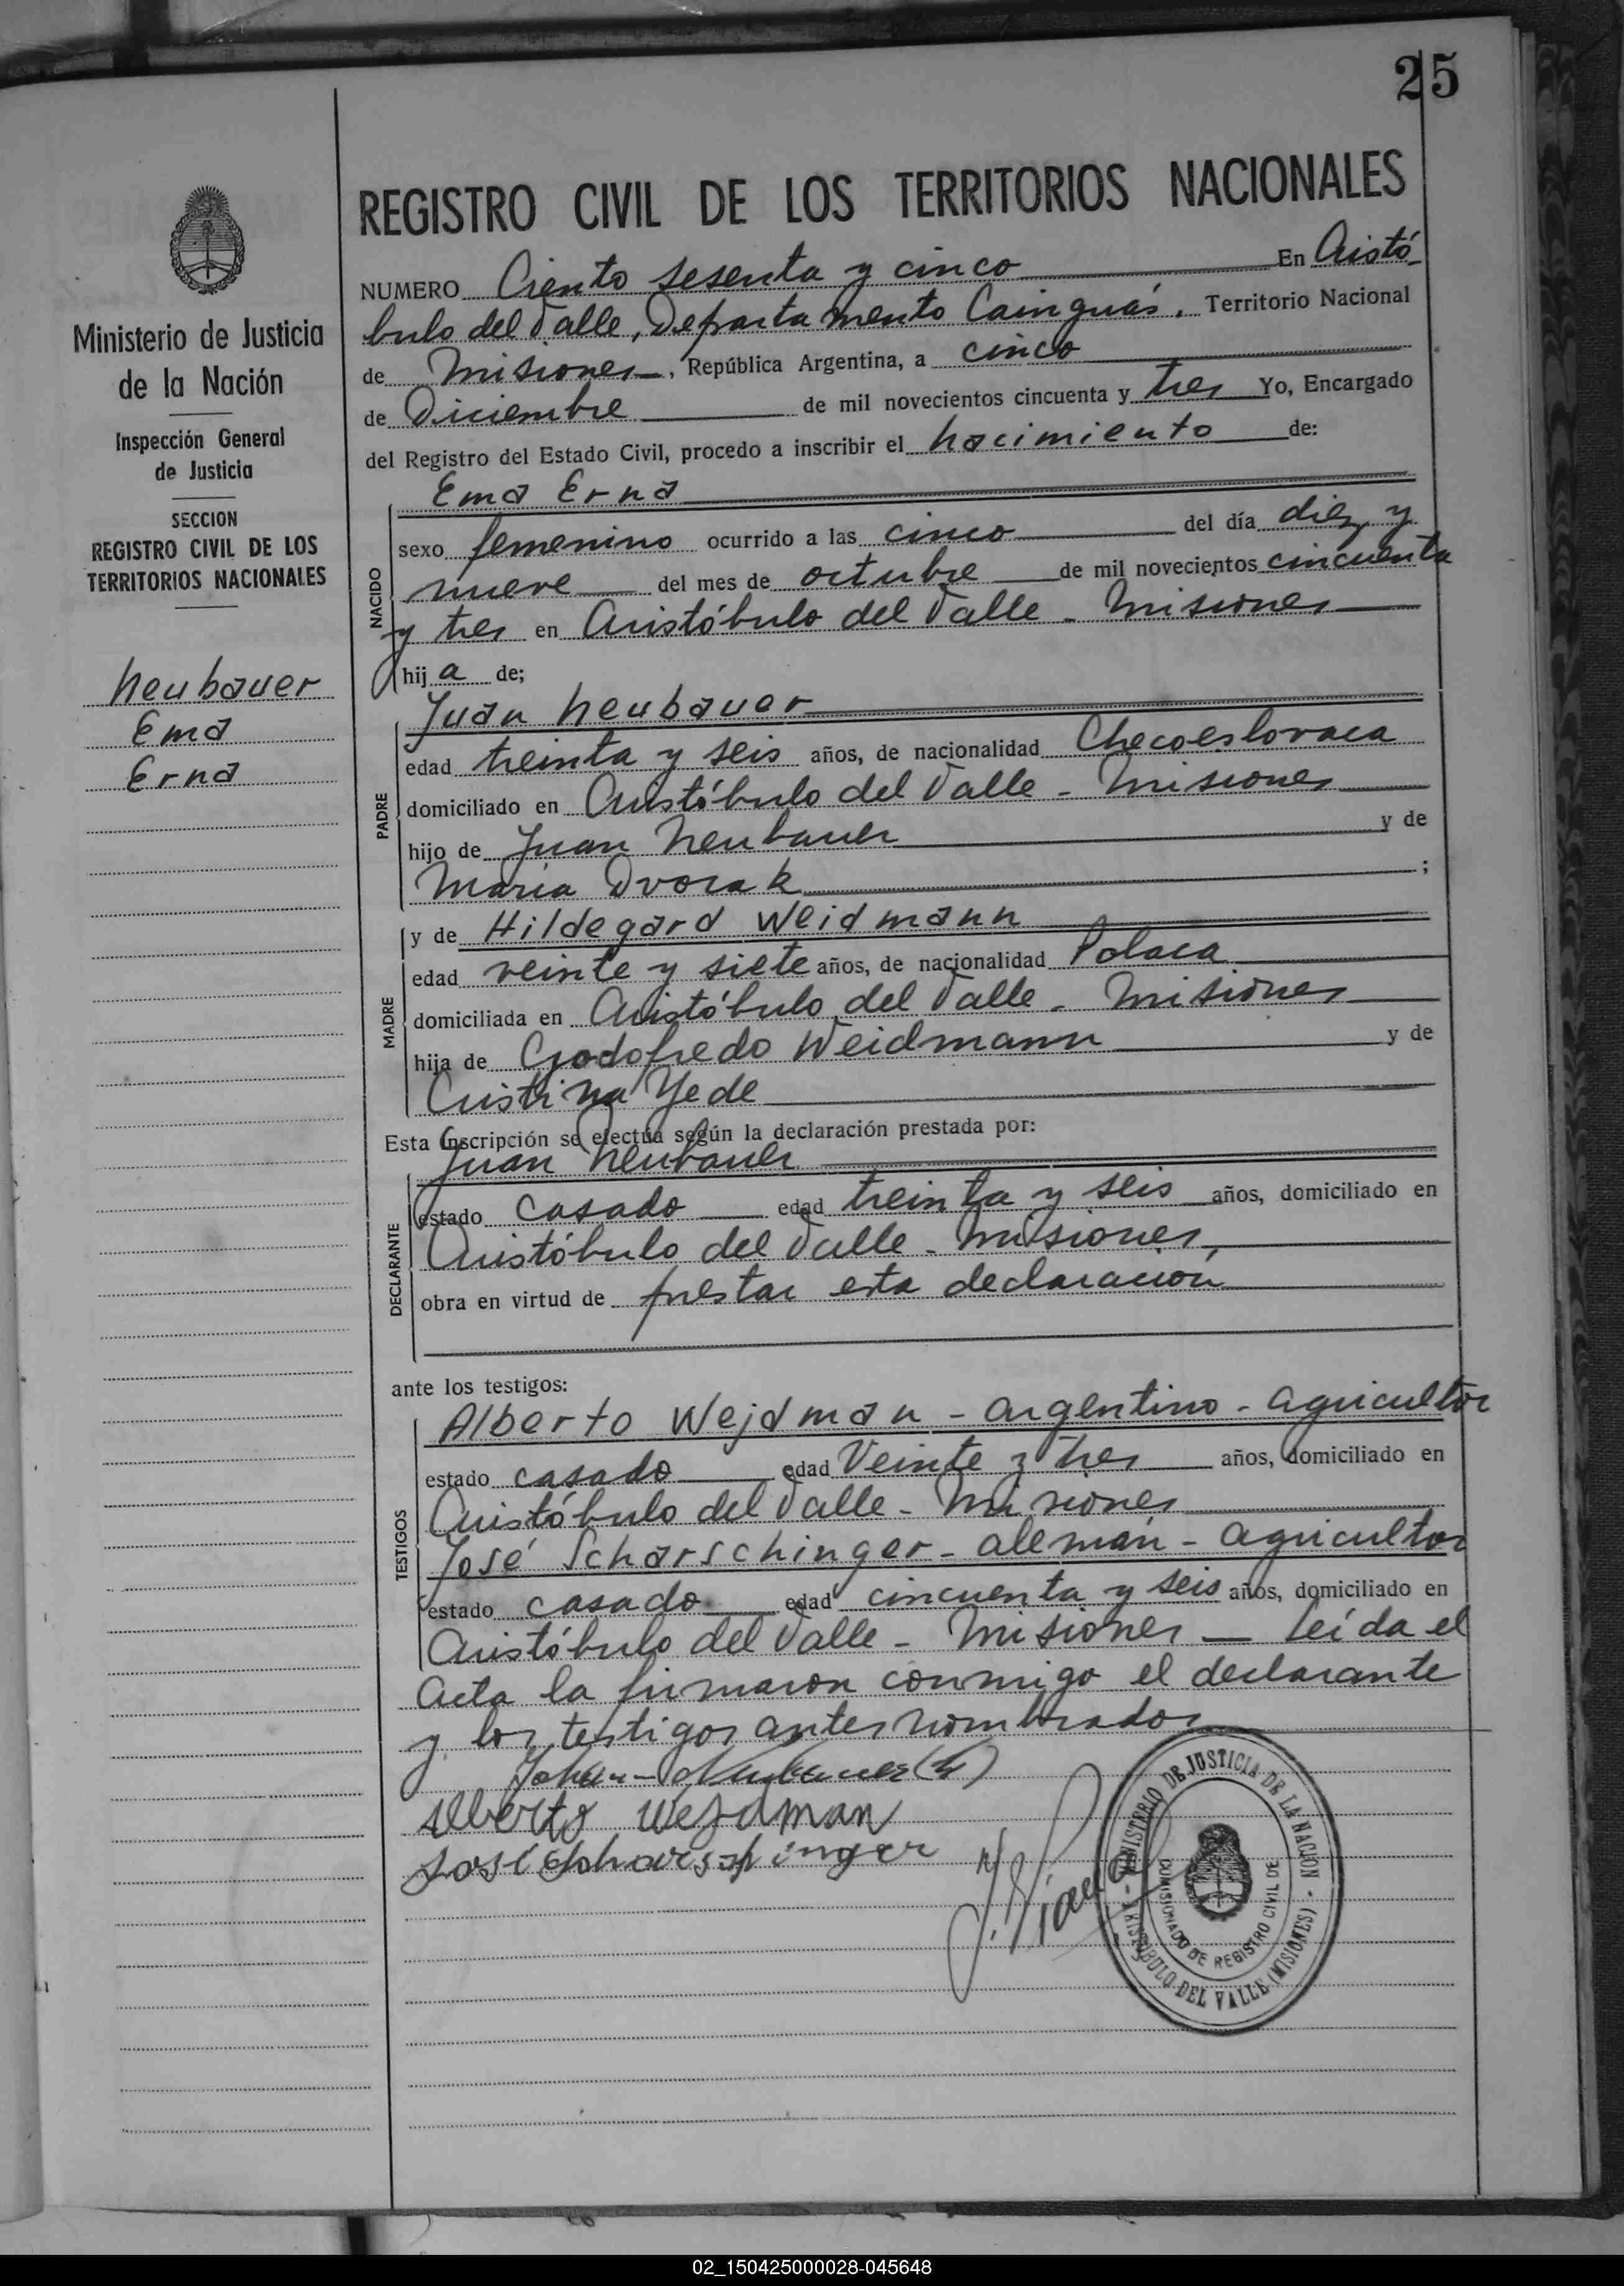 25
REGISTRO CIVIL DE LOS TERRITORIOS NACIONALES
Ministerio de Justicia
de la Nación
Inspección General
de Justicia
SECCION
REGISTRO CIVIL DE LOS
TERRITORIOS NACIONALES
Neubauer
Ema
Erna
NUMERO Ciento sesenta y cinco En Aristó
bulo del Valle, Departamento Cainguás, Territorio Nacional
de Misiones, República Argentina, a cinco
de Diciembre de mil novecientos cincuenta y tres Yo, Encargado
del Registro del Estado Civil, procedo a inscribir el nacimiento de:
NACIDO
Ema Erna
sexo femenino ocurrido a las cinco del día diez y
nueve del mes de octubre de mil novecientos cincuenta
y tres en Aristóbulo del Valle - Misiones
hij a de;
PADRE
Juan Neubauer
edad treinta y seis años, de nacionalidad Checoeslovaca
domiciliado en Aristóbulo del Valle - Misiones
hijo de Juan Neubauer y de
María Dvorak ;
MADRE
y de Hildegard Weidmann
edad veinte y siete años, de nacionalidad Polaca
domiciliada en Aristóbulo del Valle - Misiones
hija de Godofredo Weidmann y de
Cristina Yede
Esta inscripción se efectúa según la declaración prestada por:
DECLARANTE
Juan Neubauer
estado casado edad treinta y seis años, domiciliado en
Aristóbulo del Valle - Misiones,
obra en virtud de prestar esta declaración
ante los testigos:
TESTIGOS
Alberto Wejdman - argentino - agricultor
estado casado edad Veinte y tres años, domiciliado en
Aristóbulo del Valle - Misiones
José Scharschinger - alemán - agricultor
estado casado edad cincuenta y seis años, domiciliado en
Aristóbulo del Valle - Misiones — Leída el
Acta la firmaron conmigo el declarante
y los testigos antes nombrados
Johann Neubauer (h)
Alberto Wejdman
José Scharschinger
MINISTERIO DE JUSTICIA DE LA NACION - ARISTOBULO DEL VALLE (MISIONES) -
COMISIONADO DE REGISTRO CIVIL DE
02_150425000028-045648